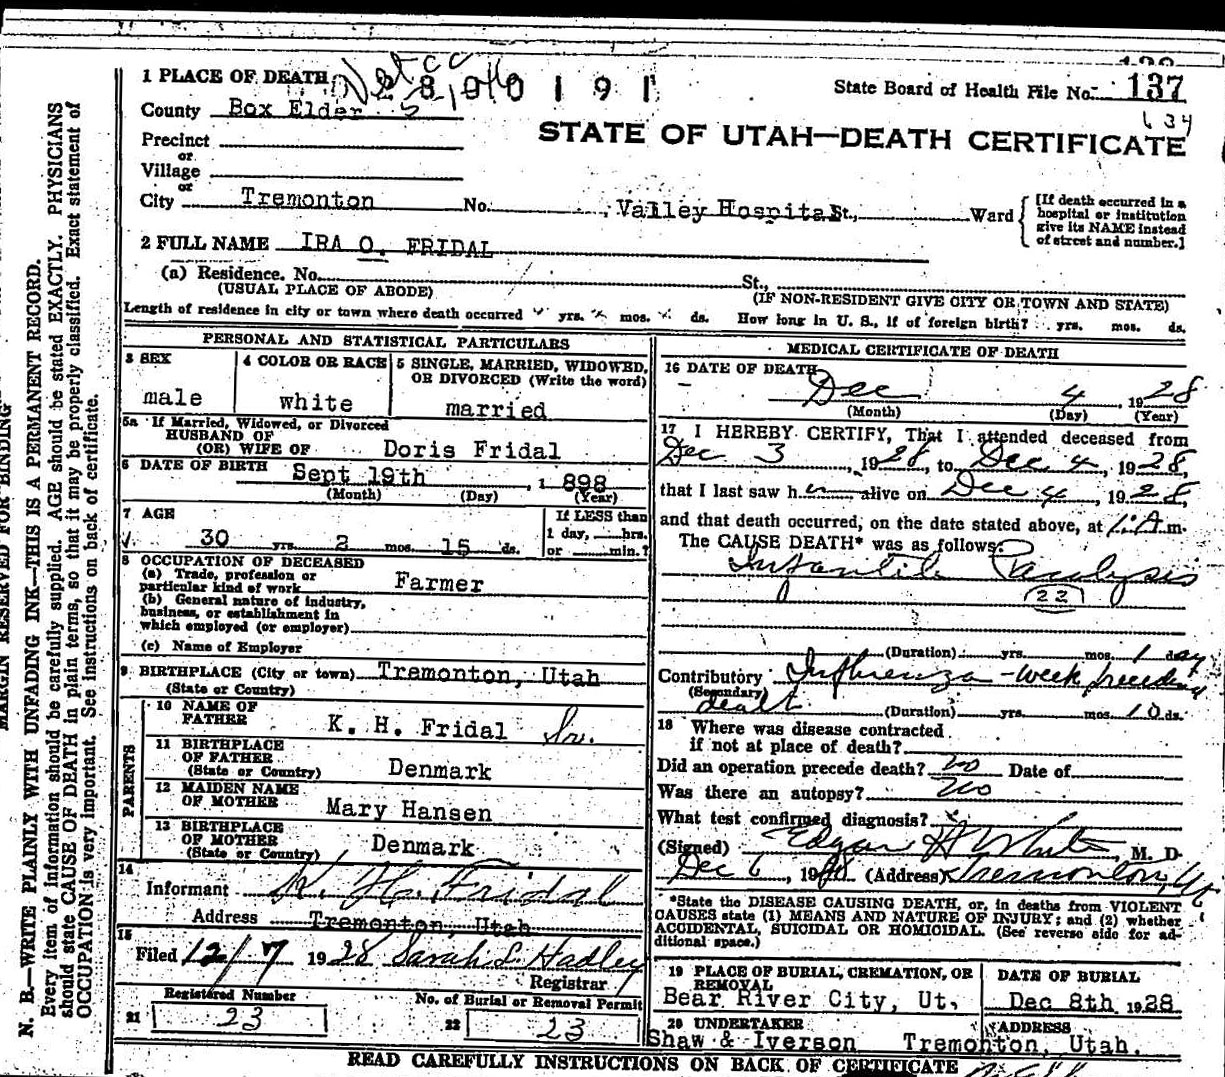 1 PLACE OF DEATH
2 8 0 0 1 9 1
State Board of Health File No. 137
County Box Elder
STATE OF UTAH—DEATH CERTIFICATE
Precinct
or
Village
or
City Tremonton No. Valley Hospital St., Ward
[If death occurred in a
hospital or institution
give its NAME instead
of street and number.]
2 FULL NAME IRA O. FRIDAL
(a) Residence. No. St.,
(USUAL PLACE OF ABODE) (IF NON-RESIDENT GIVE CITY OR TOWN AND STATE)
Length of residence in city or town where death occurred yrs. mos. ds. How long in U. S., if of foreign birth? yrs. mos. ds.
PERSONAL AND STATISTICAL PARTICULARS
3 SEX
male
4 COLOR OR RACE
white
5 SINGLE, MARRIED, WIDOWED,
OR DIVORCED (Write the word)
married
5a If Married, Widowed, or Divorced
HUSBAND OF
(OR) WIFE OF Doris Fridal
6 DATE OF BIRTH Sept 19th, 1898
(Month) (Day) (Year)
7 AGE
30 yrs. 2 mos. 15 ds.
If LESS than
1 day, hrs.
or min.?
8 OCCUPATION OF DECEASED
(a) Trade, profession or
particular kind of work Farmer
(b) General nature of industry,
business, or establishment in
which employed (or employer)
(c) Name of Employer
9 BIRTHPLACE (City or town) Tremonton, Utah
(State or Country)
PARENTS
10 NAME OF
FATHER K. H. Fridal Sr.
11 BIRTHPLACE
OF FATHER
(State or Country) Denmark
12 MAIDEN NAME
OF MOTHER Mary Hansen
13 BIRTHPLACE
OF MOTHER
(State or Country) Denmark
14
Informant K. H. Fridal
Address Tremonton, Utah
15
Filed 12/7 1928 Sarah L Hadley
Registrar
Registered Number
21 23
No. of Burial or Removal Permit
22 23
MEDICAL CERTIFICATE OF DEATH
16 DATE OF DEATH
Dec 4, 1928
(Month) (Day) (Year)
17 I HEREBY CERTIFY, That I attended deceased from
Dec 3, 1928, to Dec 4, 1928,
that I last saw him alive on Dec 4, 1928,
and that death occurred, on the date stated above, at 1:A m.
The CAUSE DEATH* was as follows:
Infantile Paralysis
(22)
(Duration) yrs. mos. 1 day
Contributory Influenza - week preceding
(Secondary)
death (Duration) yrs. mos. 10 ds.
18 Where was disease contracted
if not at place of death?
Did an operation precede death? no Date of
Was there an autopsy? no
What test confirmed diagnosis?
(Signed) Edgar H White, M. D.
Dec 6, 19 (Address) Tremonton, Ut
*State the DISEASE CAUSING DEATH, or, in deaths from VIOLENT
CAUSES state (1) MEANS AND NATURE OF INJURY; and (2) whether
ACCIDENTAL, SUICIDAL OR HOMICIDAL. (See reverse side for ad-
ditional space.)
19 PLACE OF BURIAL, CREMATION, OR
REMOVAL
Bear River City, Ut.
DATE OF BURIAL
Dec 8th 1928
20 UNDERTAKER
Shaw & Iverson
ADDRESS
Tremonton, Utah.
READ CAREFULLY INSTRUCTIONS ON BACK OF CERTIFICATE
MARGIN RESERVED FOR BINDING
N. B.—WRITE PLAINLY WITH UNFADING INK—THIS IS A PERMANENT RECORD.
Every item of information should be carefully supplied. AGE should be stated EXACTLY. PHYSICIANS
should state CAUSE OF DEATH in plain terms, so that it may be properly classified. Exact statement of
OCCUPATION is very important. See instructions on back of certificate.